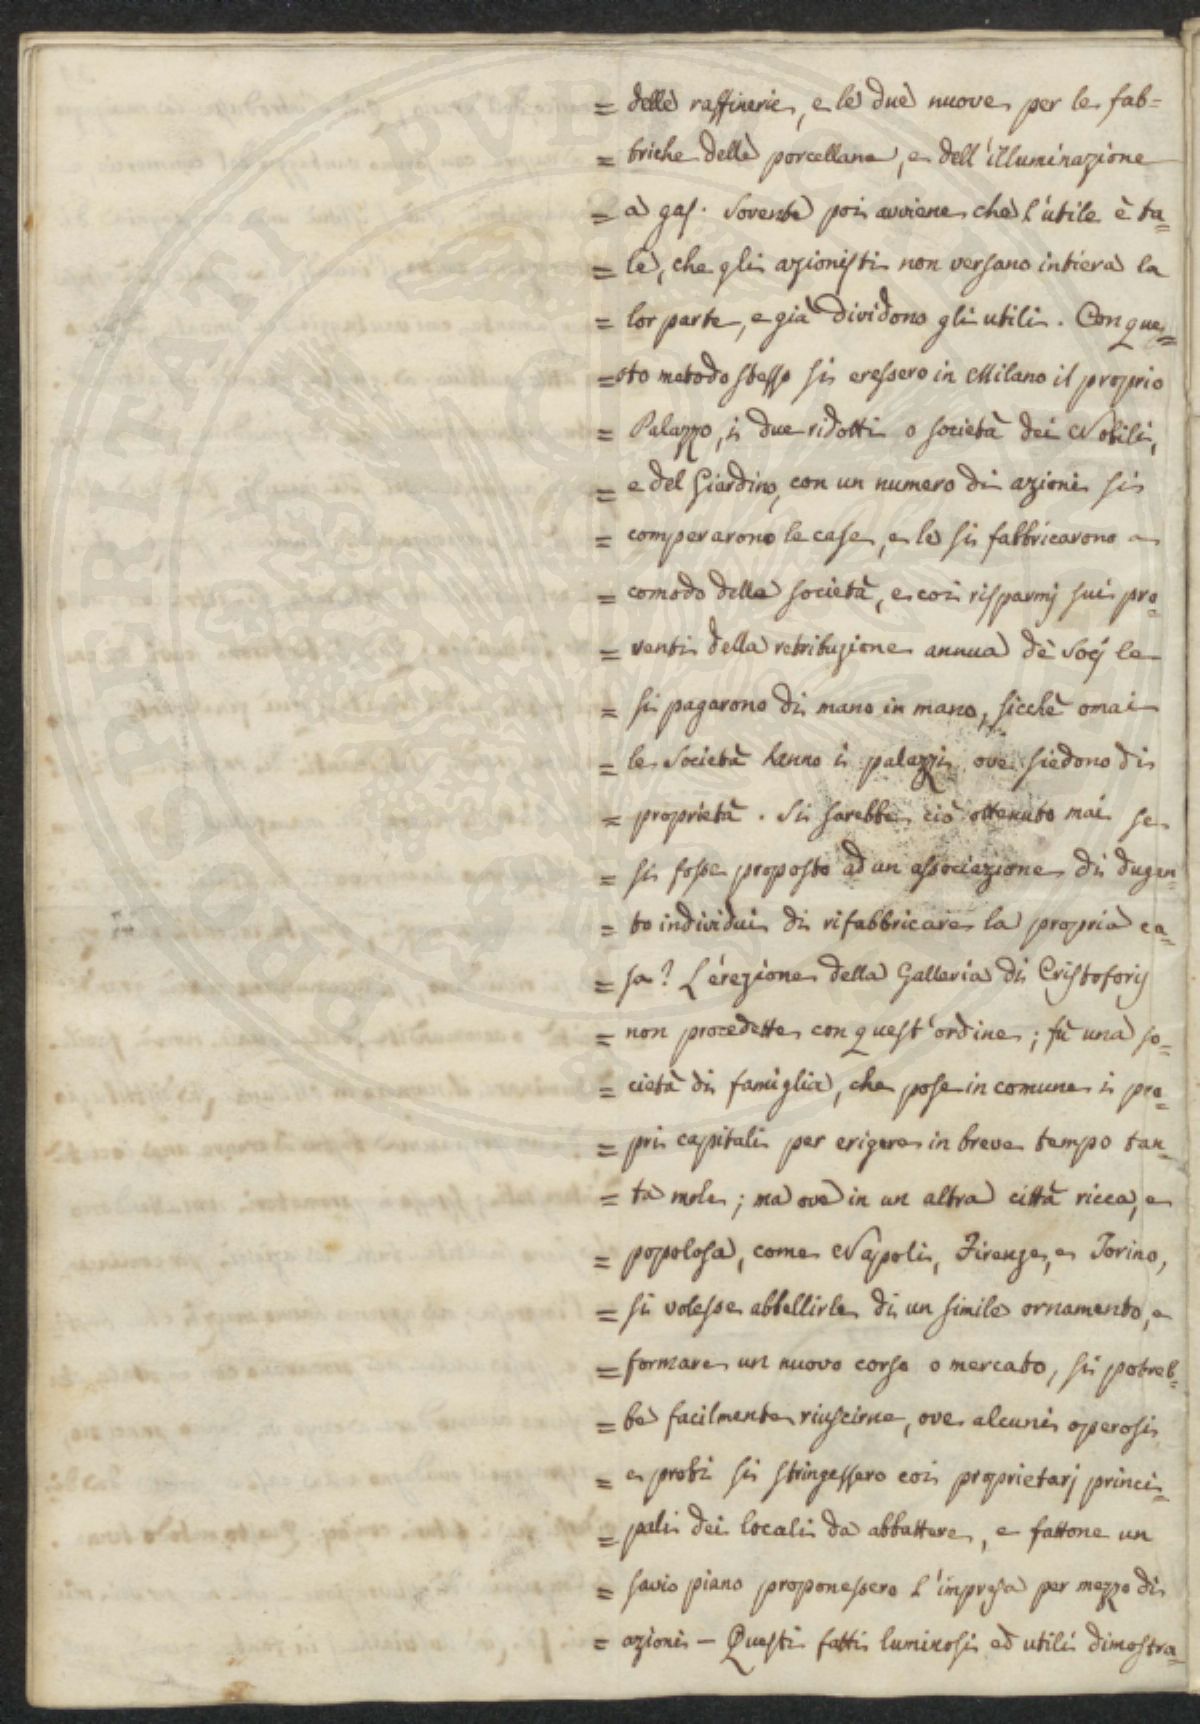 = delle raffinerie, e le due nuove per le fab=
= briche delle porcellane, e dell'illuminazione
= a gas. Sovente poi avviene che l'utile è ta=
= le, che gli azionisti non versano intiera la
= lor parte, e già dividono gli utili. Con que=
= sto metodo stesso si eressero in Milano il proprio
= Palazzo, i due ridotti o società dei Nobili,
= e del Giardino, con un numero di azioni si
= comperarono le case, e le si fabbricarono a
= comodo della società, e coi risparmj sui pro=
= venti della retribuzione annua de' Socj le
= si pagarono di mano in mano, sicchè omai
= le Società hanno i palazzi ove siedono di
= proprietà. Si sarebbe ciò ottenuto mai se
= si fosse proposto ad un associazione di dugen=
= to individui di rifabbricare la propria ca=
= sa? L'erezione della Galleria di Cristoforis
= non procedette con quest'ordine; fù una so=
= cietà di famiglia, che pose in comune i pro=
= pri capitali per erigere in breve tempo tan=
= ta mole; ma ove in un altra città ricca, e
= popolosa, come Napoli, Firenze, e Torino,
= si volesse abbellirle di un simile ornamento, e
= formare un nuovo corso o mercato, si potreb=
= be facilmente riuscirne, ove alcuni operosi
= e probi si stringessero coi proprietarj princi=
= pali dei locali da abbattere, e fattone un
= savio piano proponessero l'impresa per mezzo di
= azioni — Questi fatti luminosi ed utili dimostra=